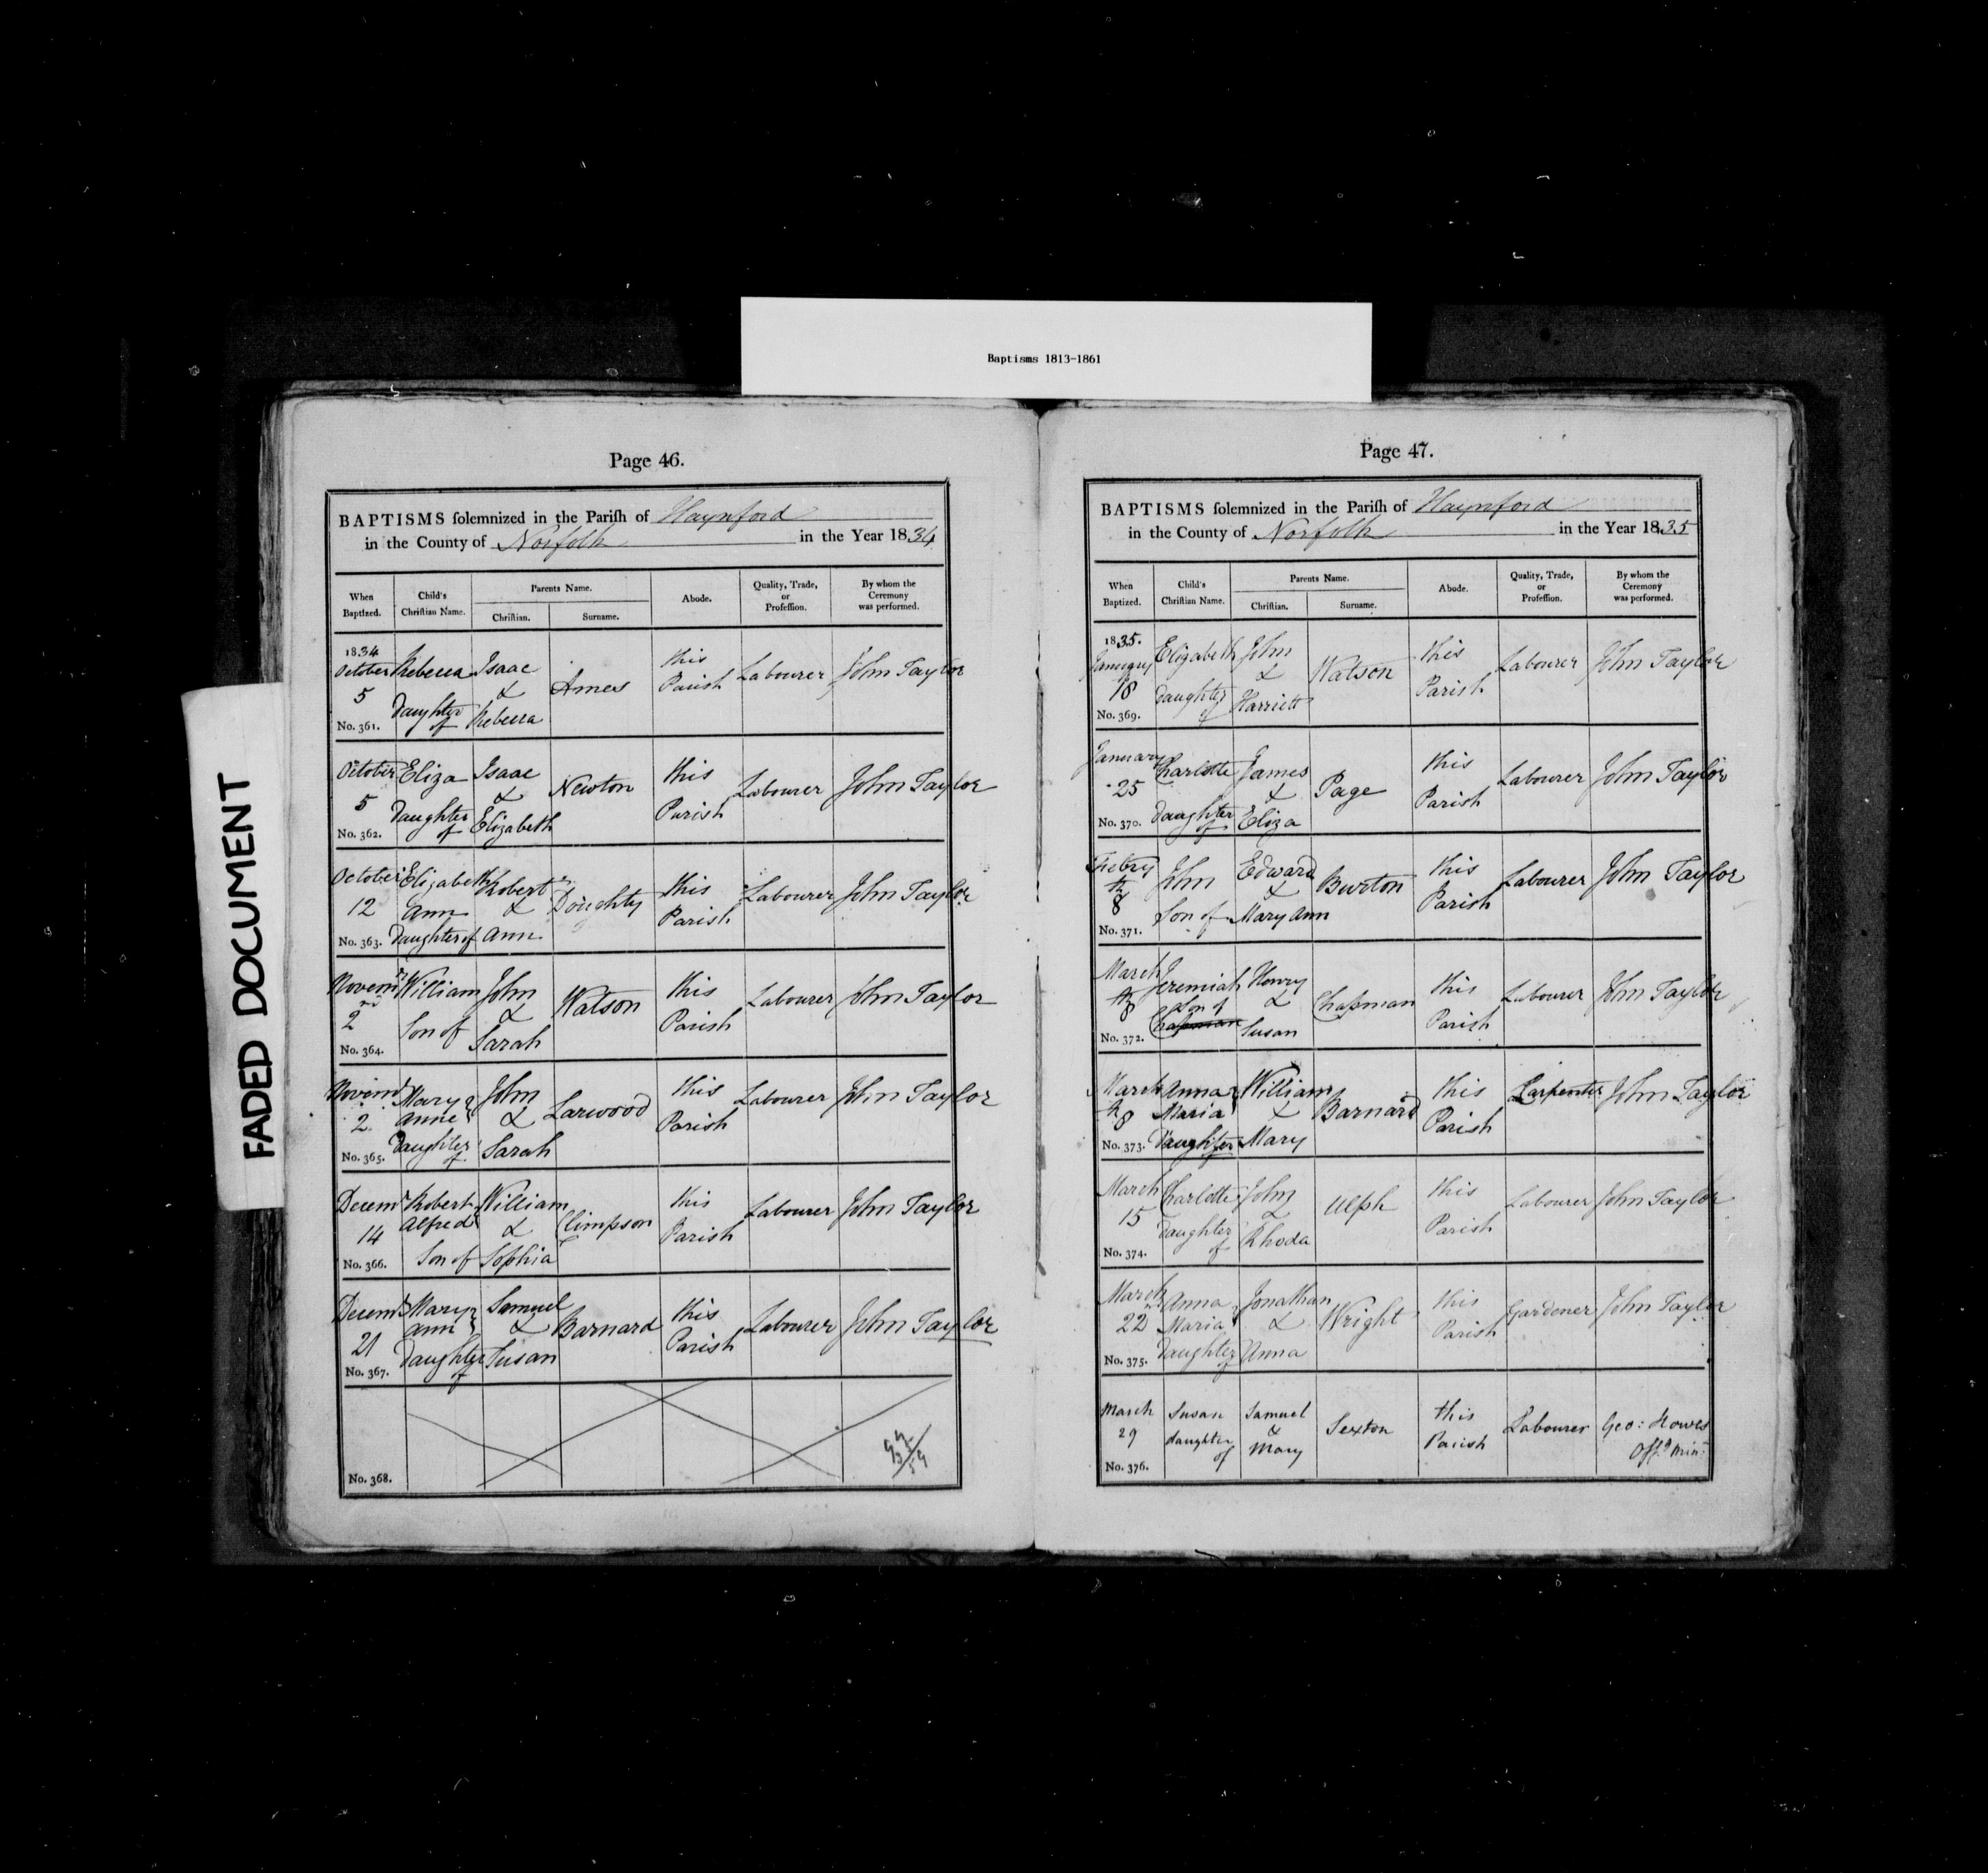 Baptisms 1813-1861
FADED DOCUMENT
Page 46.
BAPTISMS ſolemnized in the Pariſh of Haynford
in the County of Norfolk in the Year 1834
When Baptized. Child's Chriſtian Name. Parents Name. Chriſtian. Surname. Abode. Quality, Trade, or Profeſſion. By whom the Ceremony was performed.
1834 October 5 No. 361. Rebecca Daughter of Isaac & Rebecca Ames this Parish Labourer John Taylor
October 5 No. 362. Eliza Daughter of Isaac & Elizabeth Newton this Parish Labourer John Taylor
October 12 No. 363. Elizabeth Ann Daughter of Robert & Ann Doughty this Parish Labourer John Taylor
Novemr 2nd No. 364. William Son of John & Sarah Watson this Parish Labourer John Taylor
Novemr 2 No. 365. Mary Anne Daughter of John & Sarah Larwood this Parish Labourer John Taylor
Decemr 14 No. 366. Robert Alfred Son of William & Sophia Climpson this Parish Labourer John Taylor
Decemr 21 No. 367. Mary Ann Daughter of Samuel & Susan Barnard this Parish Labourer John Taylor
No. 368.
Page 47.
BAPTISMS ſolemnized in the Pariſh of Haynford
in the County of Norfolk in the Year 1835
When Baptized. Child's Chriſtian Name. Parents Name. Chriſtian. Surname. Abode. Quality, Trade, or Profeſſion. By whom the Ceremony was performed.
1835. January 18 No. 369. Elizabeth Daughter of John & Harriett Watson this Parish Labourer John Taylor
January 25 No. 370. Charlotte Daughter of James & Eliza Page this Parish Labourer John Taylor
Febry 8th No. 371. John Son of Edward & Mary Ann Burton this Parish Labourer John Taylor
March 8th No. 372. Jeremiah Son of Chapman Henry & Susan Chapman this Parish Labourer John Taylor
March 8th No. 373. Anna Maria Daughter of William & Mary Barnard this Parish Carpenter John Taylor
March 15 No. 374. Charlotte Daughter of John & Rhoda Ulph this Parish Labourer John Taylor
March 22nd No. 375. Anna Maria Daughter of Jonathan & Anna Wright this Parish Gardener John Taylor
March 29 No. 376. Susan daughter of Samuel & Mary Sexton this Parish Labourer Geo: Howes Offg Minr